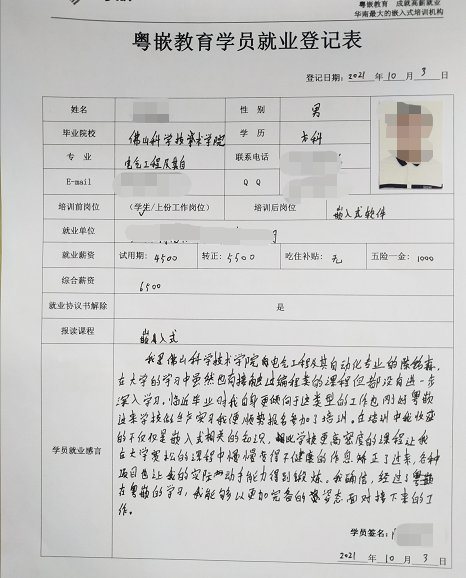 粤嵌教育 成就高薪就业
华南最大的嵌入式培训机构
粤嵌教育学员就业登记表
登记日期: 2021 年 10 月 3 日
姓名 性 别 男
毕业院校 佛山科学技术学院 学 历 本科
专 业 电气工程及其自 联系电话
E-mail Q Q
培训前岗位 (学生/上份工作岗位) 培训后岗位 嵌入式软件
就业单位
就业薪资 试用期: 4500 转正: 5500 吃住补贴: 无 五险一金: 1000
综合薪资 6500
就业协议书解除 是
报读课程 嵌入式
学员就业感言
我是佛山科学技术学院的电气工程及其自动化专业的陈
在大学的学习中虽然也有接触过编程类的课程但都没有进一步
深入学习。临近毕业时我自己更倾向于这类型的工作也刚好粤嵌
过来学校的生产实习我便顺势报名参加了培训。在培训中我收获
的不仅仅是嵌入式相关的知识，相比学校更高密度的课程让我
在大学宽松的课程中慢慢变得不健康的作息矫正了过来，各种
项目也让我的实际动手能力得到锻炼。我确信，经过了粤嵌
在粤嵌的学习，我能够以更加完备的姿态面对接下来的工
作。
学员签名:
2021 年 10 月 3 日